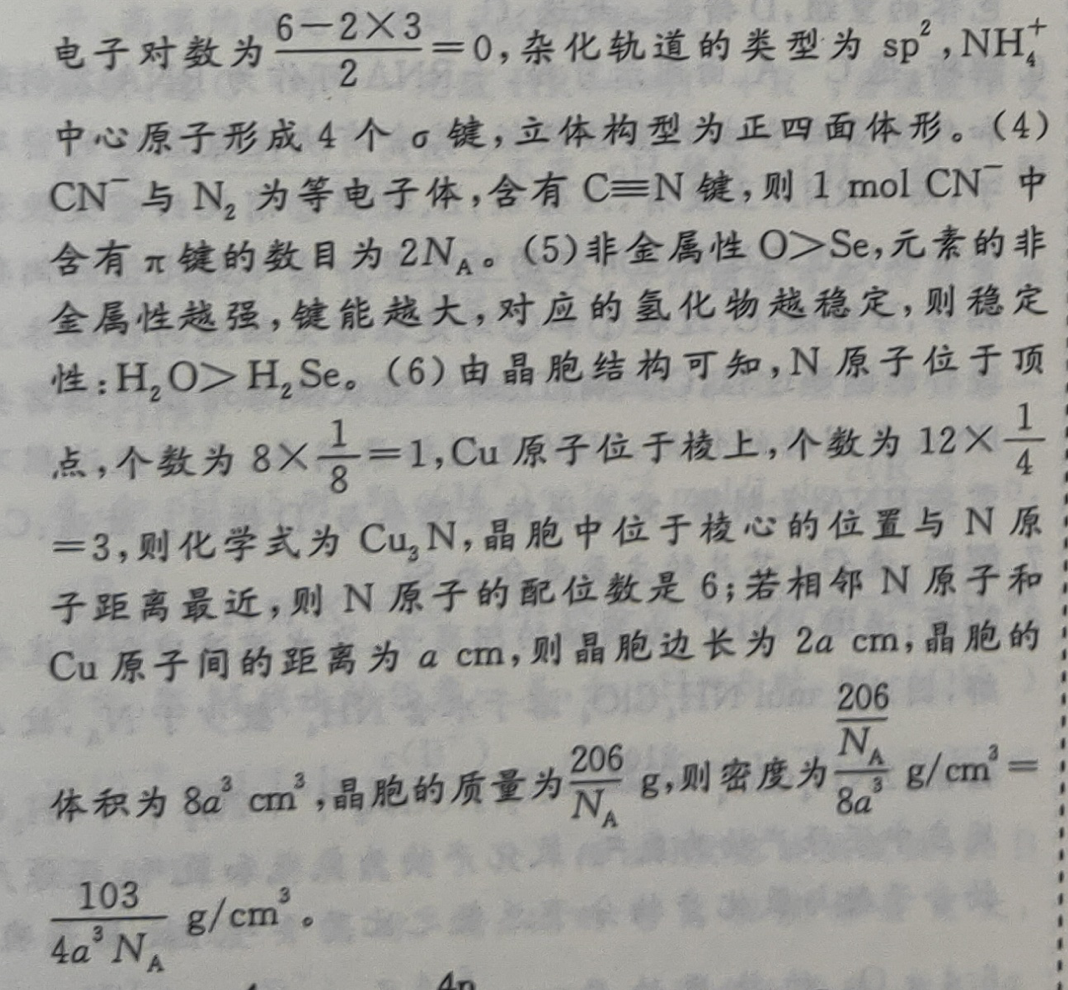 电子对数为 (6-2×3)/2 =0,杂化轨道的类型为 sp²,NH₄⁺
中心原子形成 4 个 σ 键,立体构型为正四面体形。(4)
CN⁻ 与 N₂ 为等电子体,含有 C≡N 键,则 1 mol CN⁻ 中
含有 π 键的数目为 2N_A。(5)非金属性 O>Se,元素的非
金属性越强,键能越大,对应的氢化物越稳定,则稳定
性:H₂O>H₂Se。(6)由晶胞结构可知,N 原子位于顶
点,个数为 8×1/8=1,Cu 原子位于棱上,个数为 12×1/4
=3,则化学式为 Cu₃N,晶胞中位于棱心的位置与 N 原
子距离最近,则 N 原子的配位数是 6;若相邻 N 原子和
Cu 原子间的距离为 a cm,则晶胞边长为 2a cm,晶胞的
体积为 8a³ cm³,晶胞的质量为 206/N_A g,则密度为 (206/N_A)/(8a³) g/cm³=
103/(4a³N_A) g/cm³。